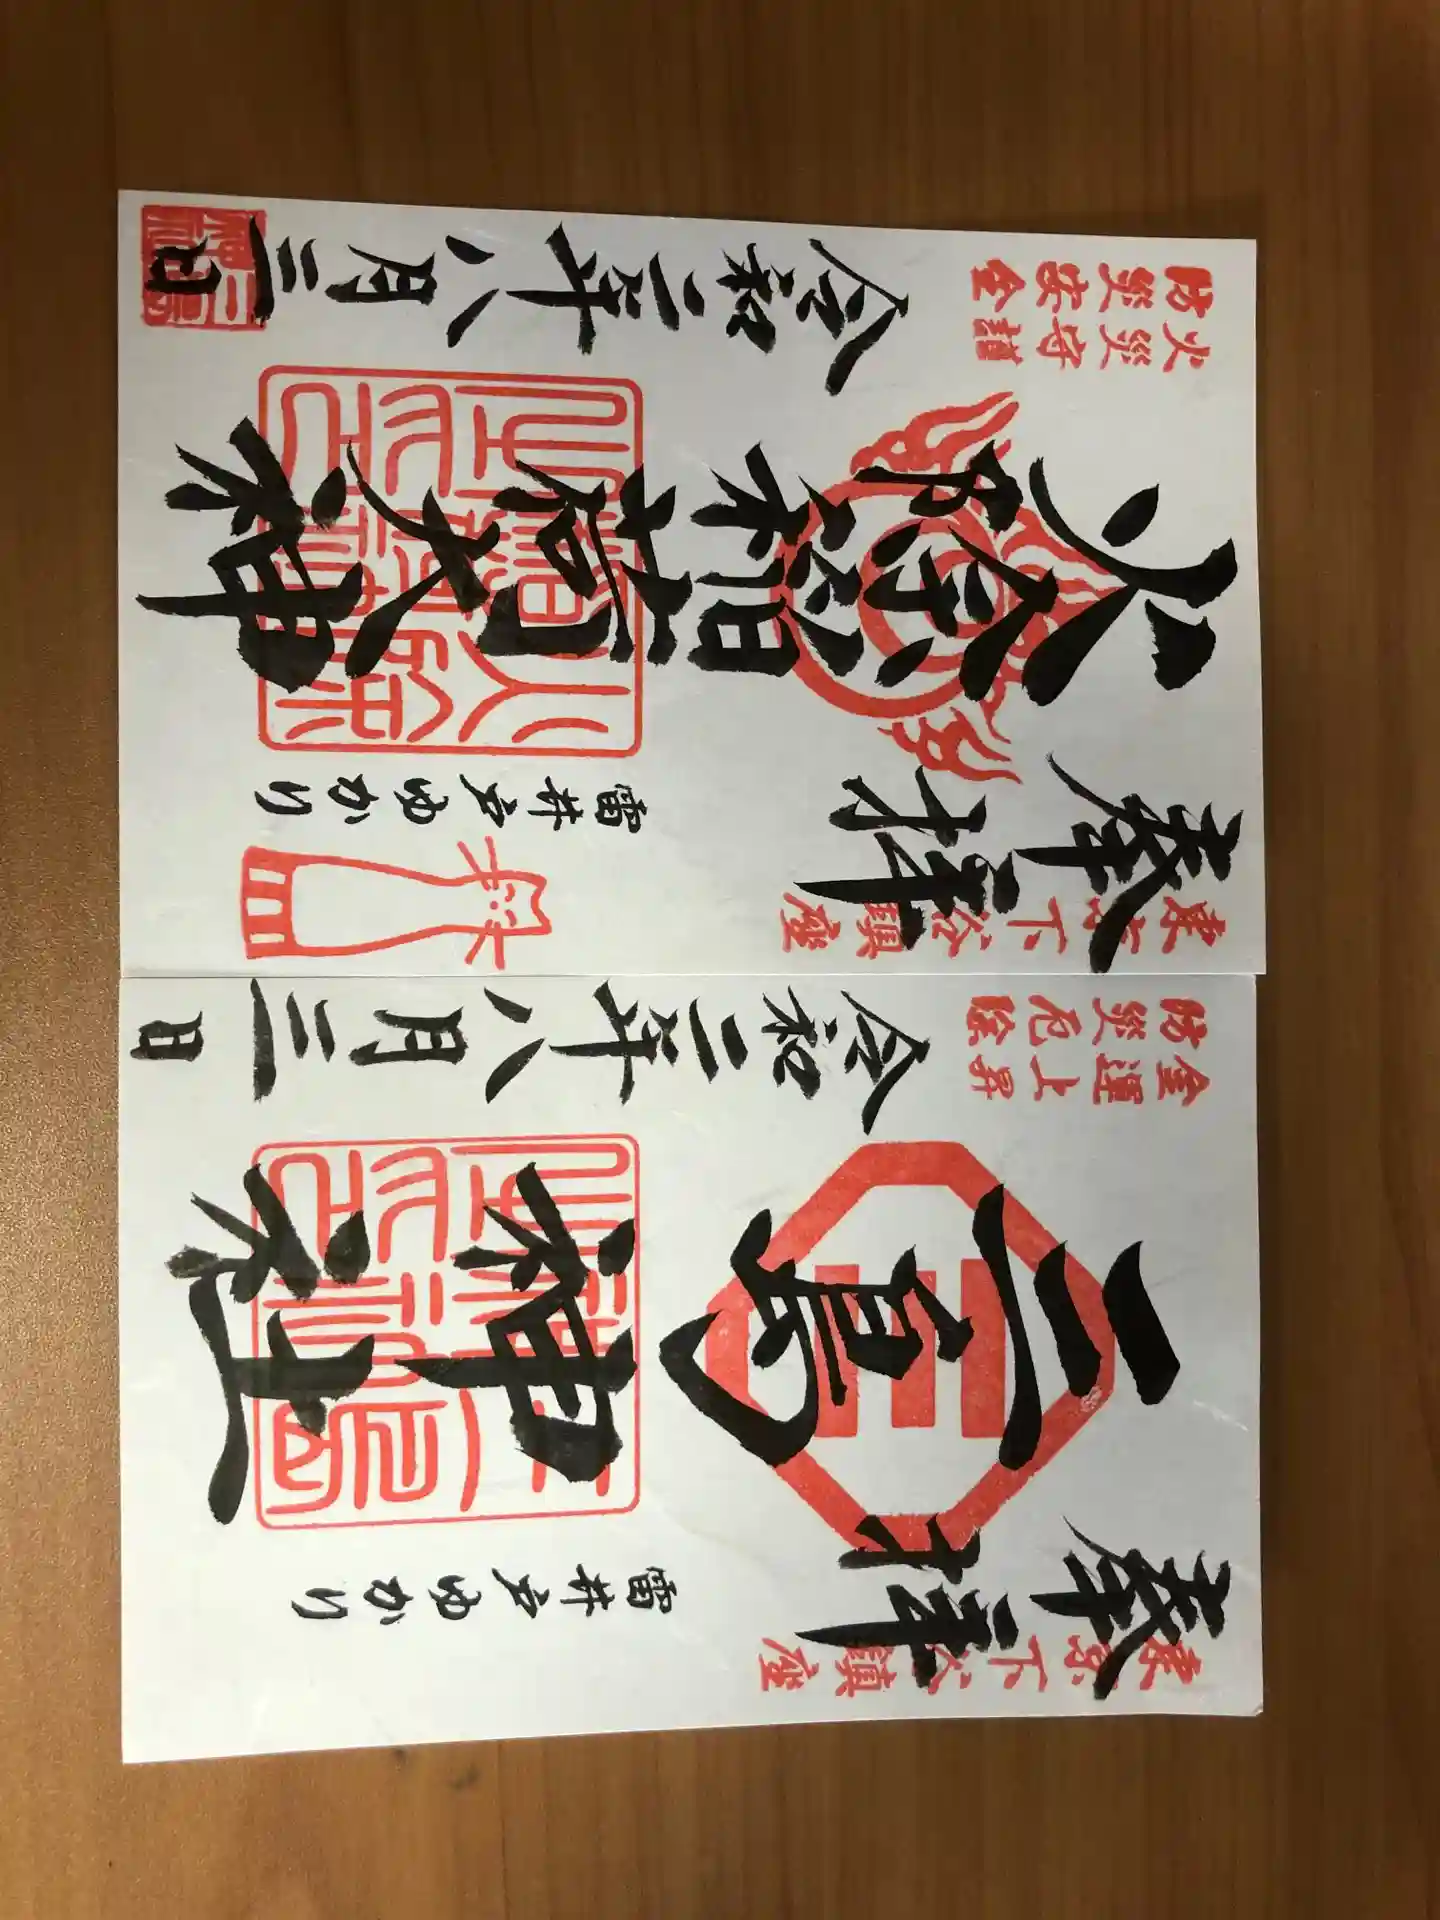 東京下谷鎮座
奉拝
雷井戸ゆかり
三島神社
三島神社之印
令和二年八月三日
金運上昇
防災厄除
東京下谷鎮座
奉拝
雷井戸ゆかり
火除稲荷大神
令和二年八月三日
三島神社
火災守護
防災安全